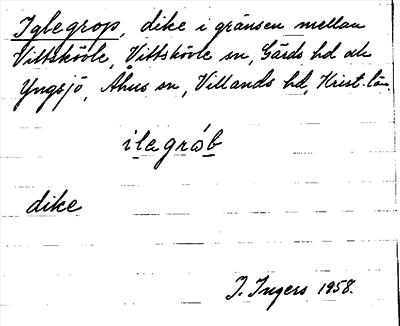 Iglegrop, dike i gränsen mellan
Vittskövle, Vittskövle sn, Gärds hd och
Yngsjö, Åhus sn, Villands hd, Krist. län
ilegråb
dike
I. Ingers 1958.